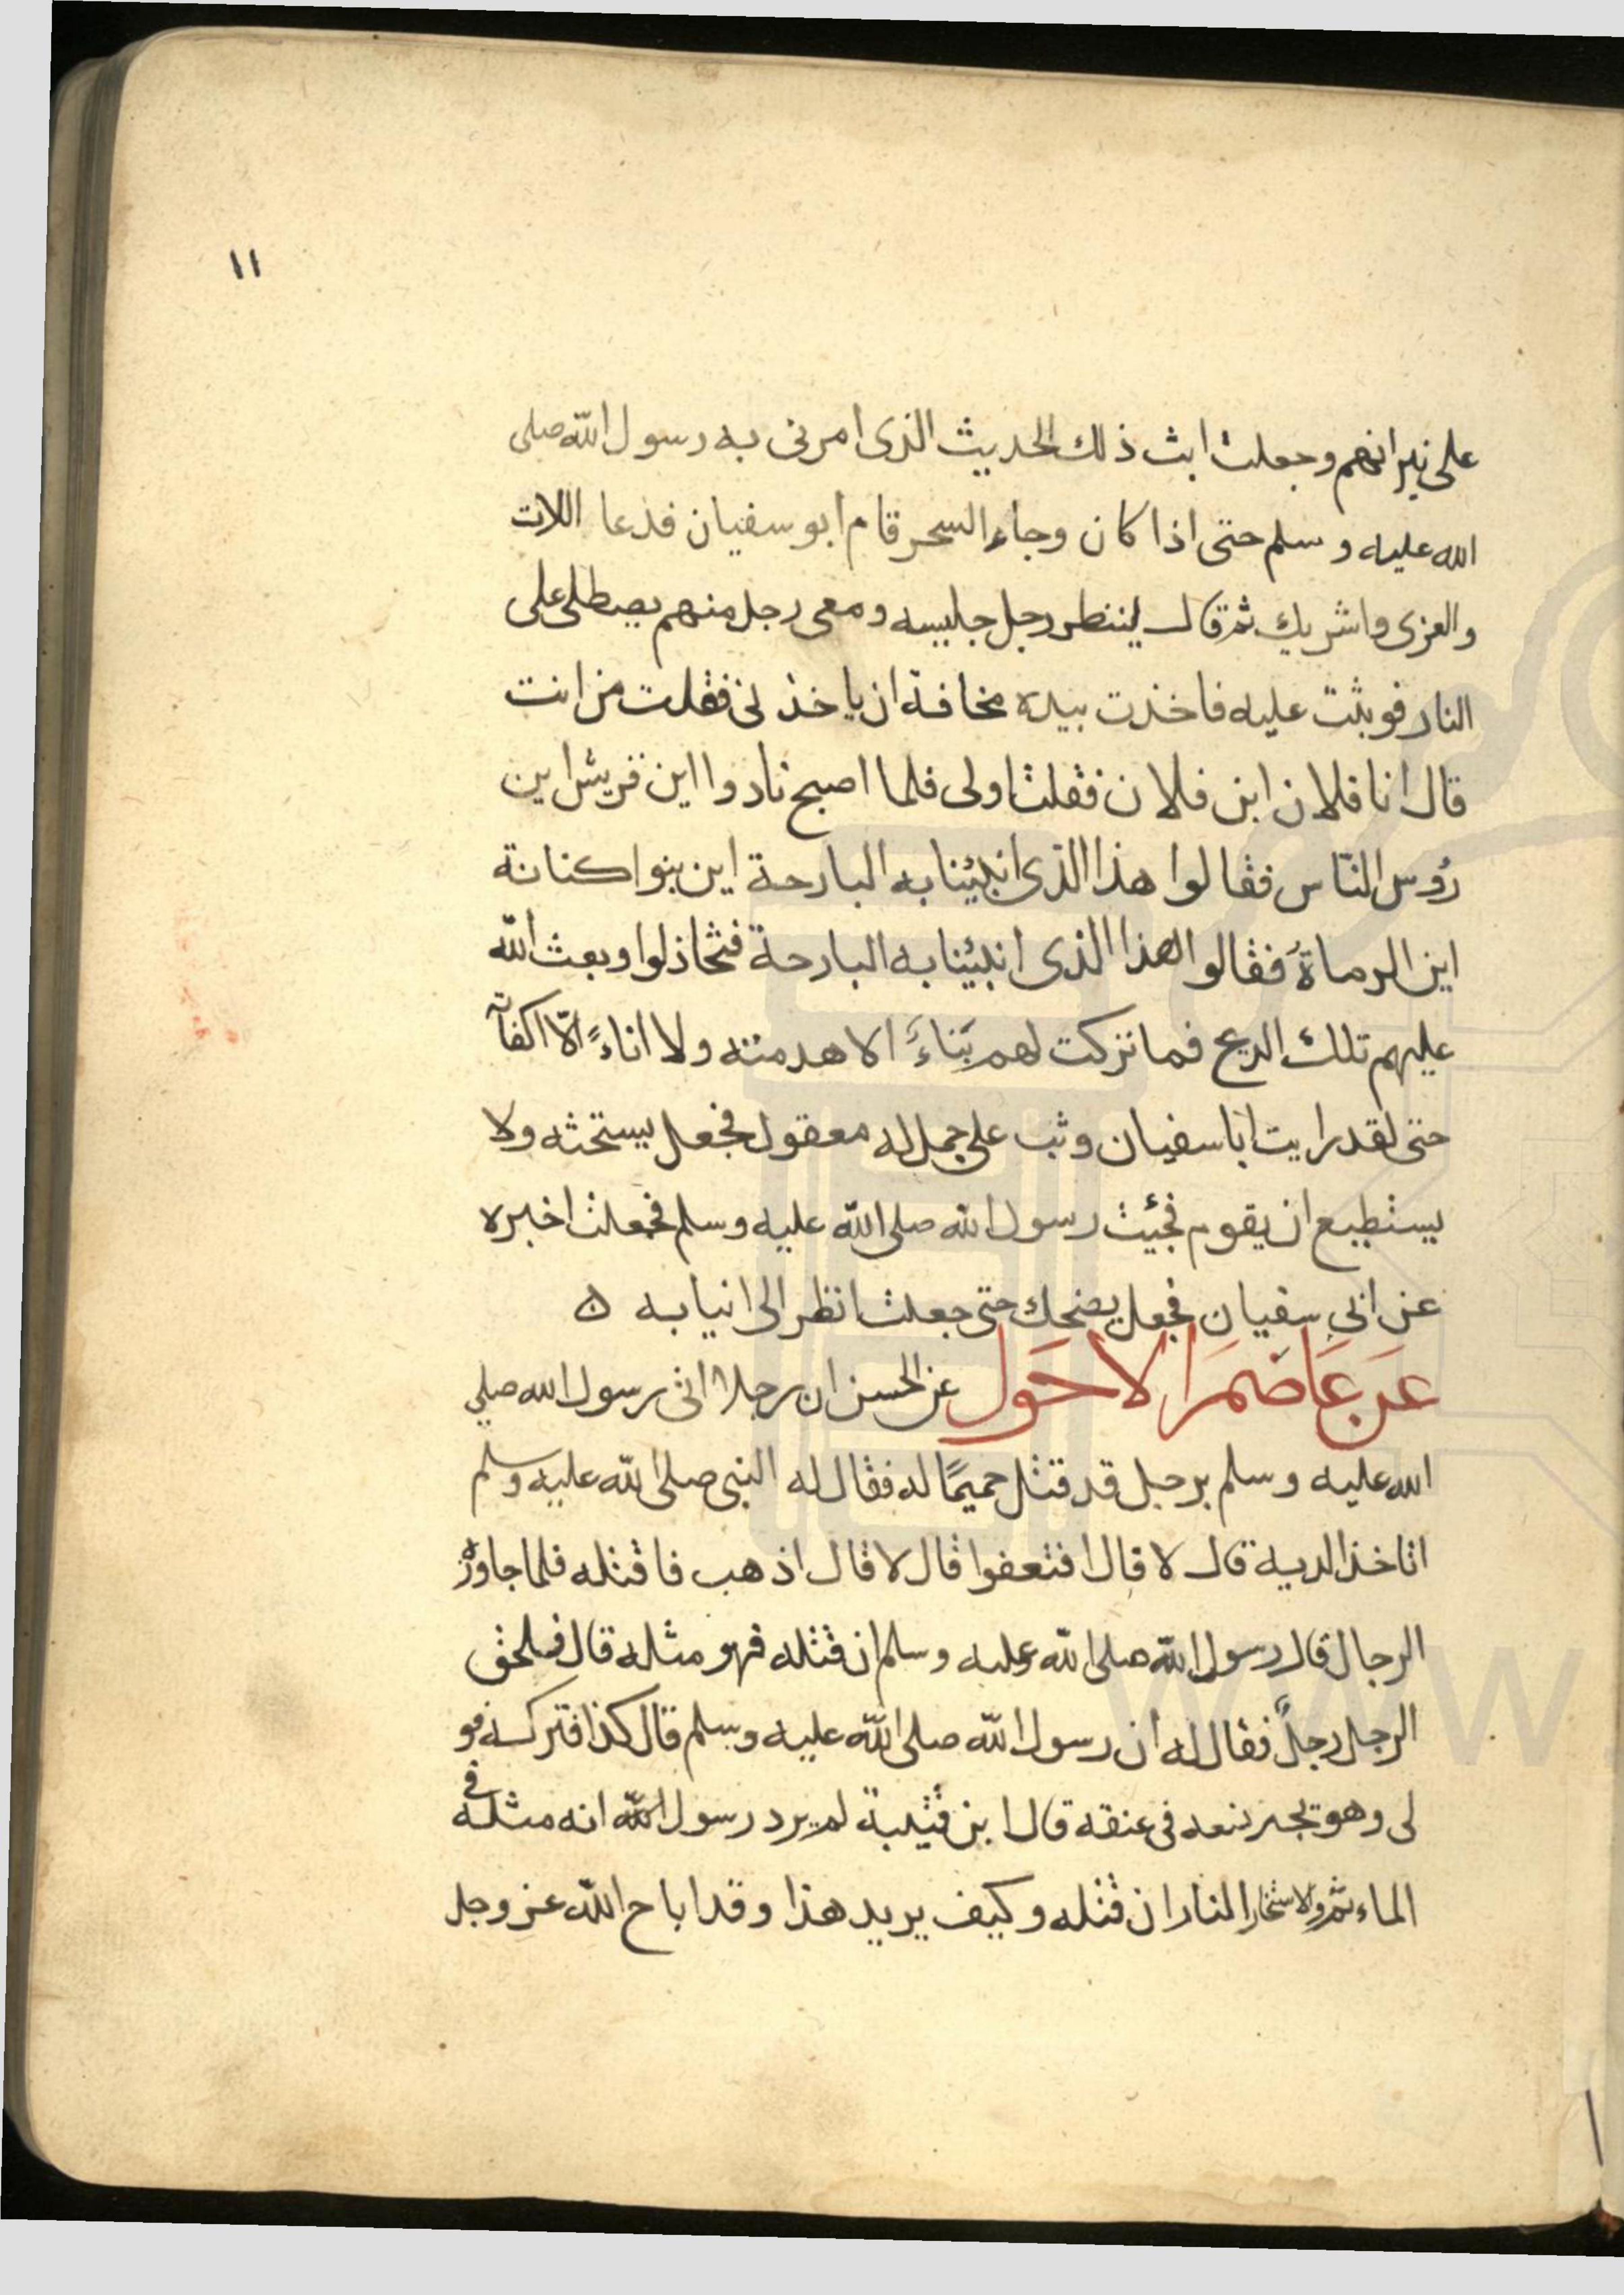 ١١
على نيرانهم وجعلت ابث ذلك الحديث الذى امرنى به رسول الله صلى
الله عليه وسلم حتى اذا كان وجاء السحر قام ابو سفيان فدعا اللات
والعزى واشريك ثم قال لينظر رجل جليسه ومعى رجل منهم يصطلى على
النار فوثبت عليه فاخذت بيده مخافة ان ياخذنى فقلت من انت
قال انا فلان ابن فلان فقلت اولى فلما اصبح نادوا اين قريش اين
رؤس النّاس فقالوا هذا الذى انبيئنا به البارحة اين بنوا كنانة
اين الرماةُ فقالوا لهذا الذى انبيئنا به البارحة فتخاذلوا وبعث الله
عليهم تلك الريح فما تركت لهم بَناءً الا هدمته ولا اناءً الّا اكفأته
حتى لقد رايت ابا سفيان وثب على جمل له معقول فجعل يستحثه ولا
يستطيع ان يقوم فجئت رسول الله صلى الله عليه وسلم فجعلت اخبره
عن ابي سفيان فجعل يضحك حتى جعلت انظر الى انيابه ه
عَن عَاصَم الاحَول عن الحسن ان رجلا اتى رسول الله صلى
الله عليه وسلم برجل قد قتل حميمًا له فقال له النبى صلى الله عليه وسلم
اتاخذ الدية قال لا قال افتعفوا قال لا قال اذهب فاقتله فلما جاوزه
الرجال قال رسول الله صلى الله عليه وسلم ان قتله فهو مثله قال فلحق
الرجل رجلٌ فقال له ان رسول الله صلى الله عليه وسلم قال كذا فتركه فو
لى وهو يجر نسعه فى عنقه قال ابن قتيبة لم يرد رسول الله انه مثله فى
الماء ثم والاستخار المنار ان قتله وكيف يريد هذا وقد اباح الله عز وجل